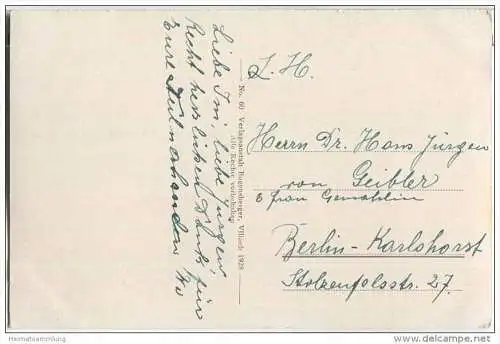 Liebe Imi, liebe Jürgen,
Recht herzlichen Dank für
Eure Teilnahme
No. 60 Verlagsanstalt Bugensberger, Villach 1928
Alle Rechte vorbehalten
L. H.
Herrn Dr. Hans Jürgen
von Geibler
& Frau Gemahlin
Berlin-Karlshorst
Stolzenfelsstr. 27.
Heimatsammlung
www.delcampe.net